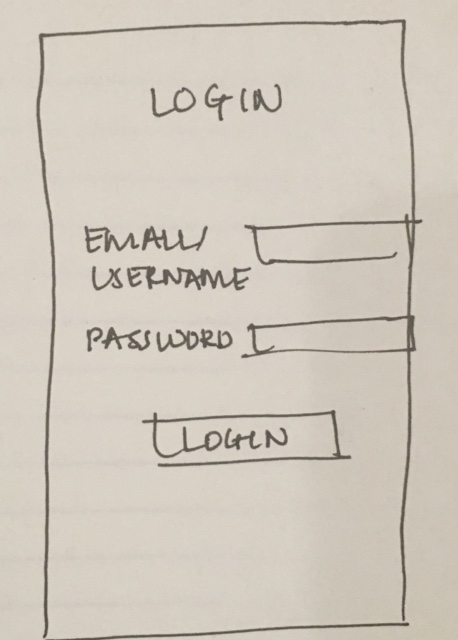 LOGIN
EMAIL/
USERNAME
PASSWORD
LOGIN